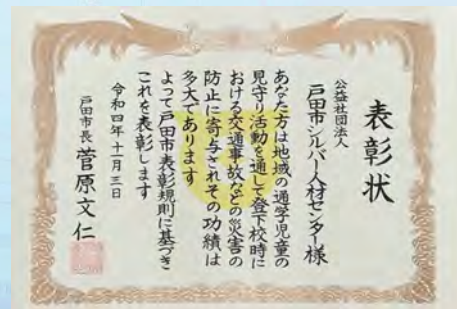 表彰状
公益社団法人
戸田市シルバー人材センター様
あなた方は地域の通学児童の
見守り活動を通して登下校時に
おける交通事故などの災害の
防止に寄与されその功績は
多大であります
よって戸田市表彰規則に基づき
これを表彰します
令和四年十一月三日
戸田市長 菅原文仁